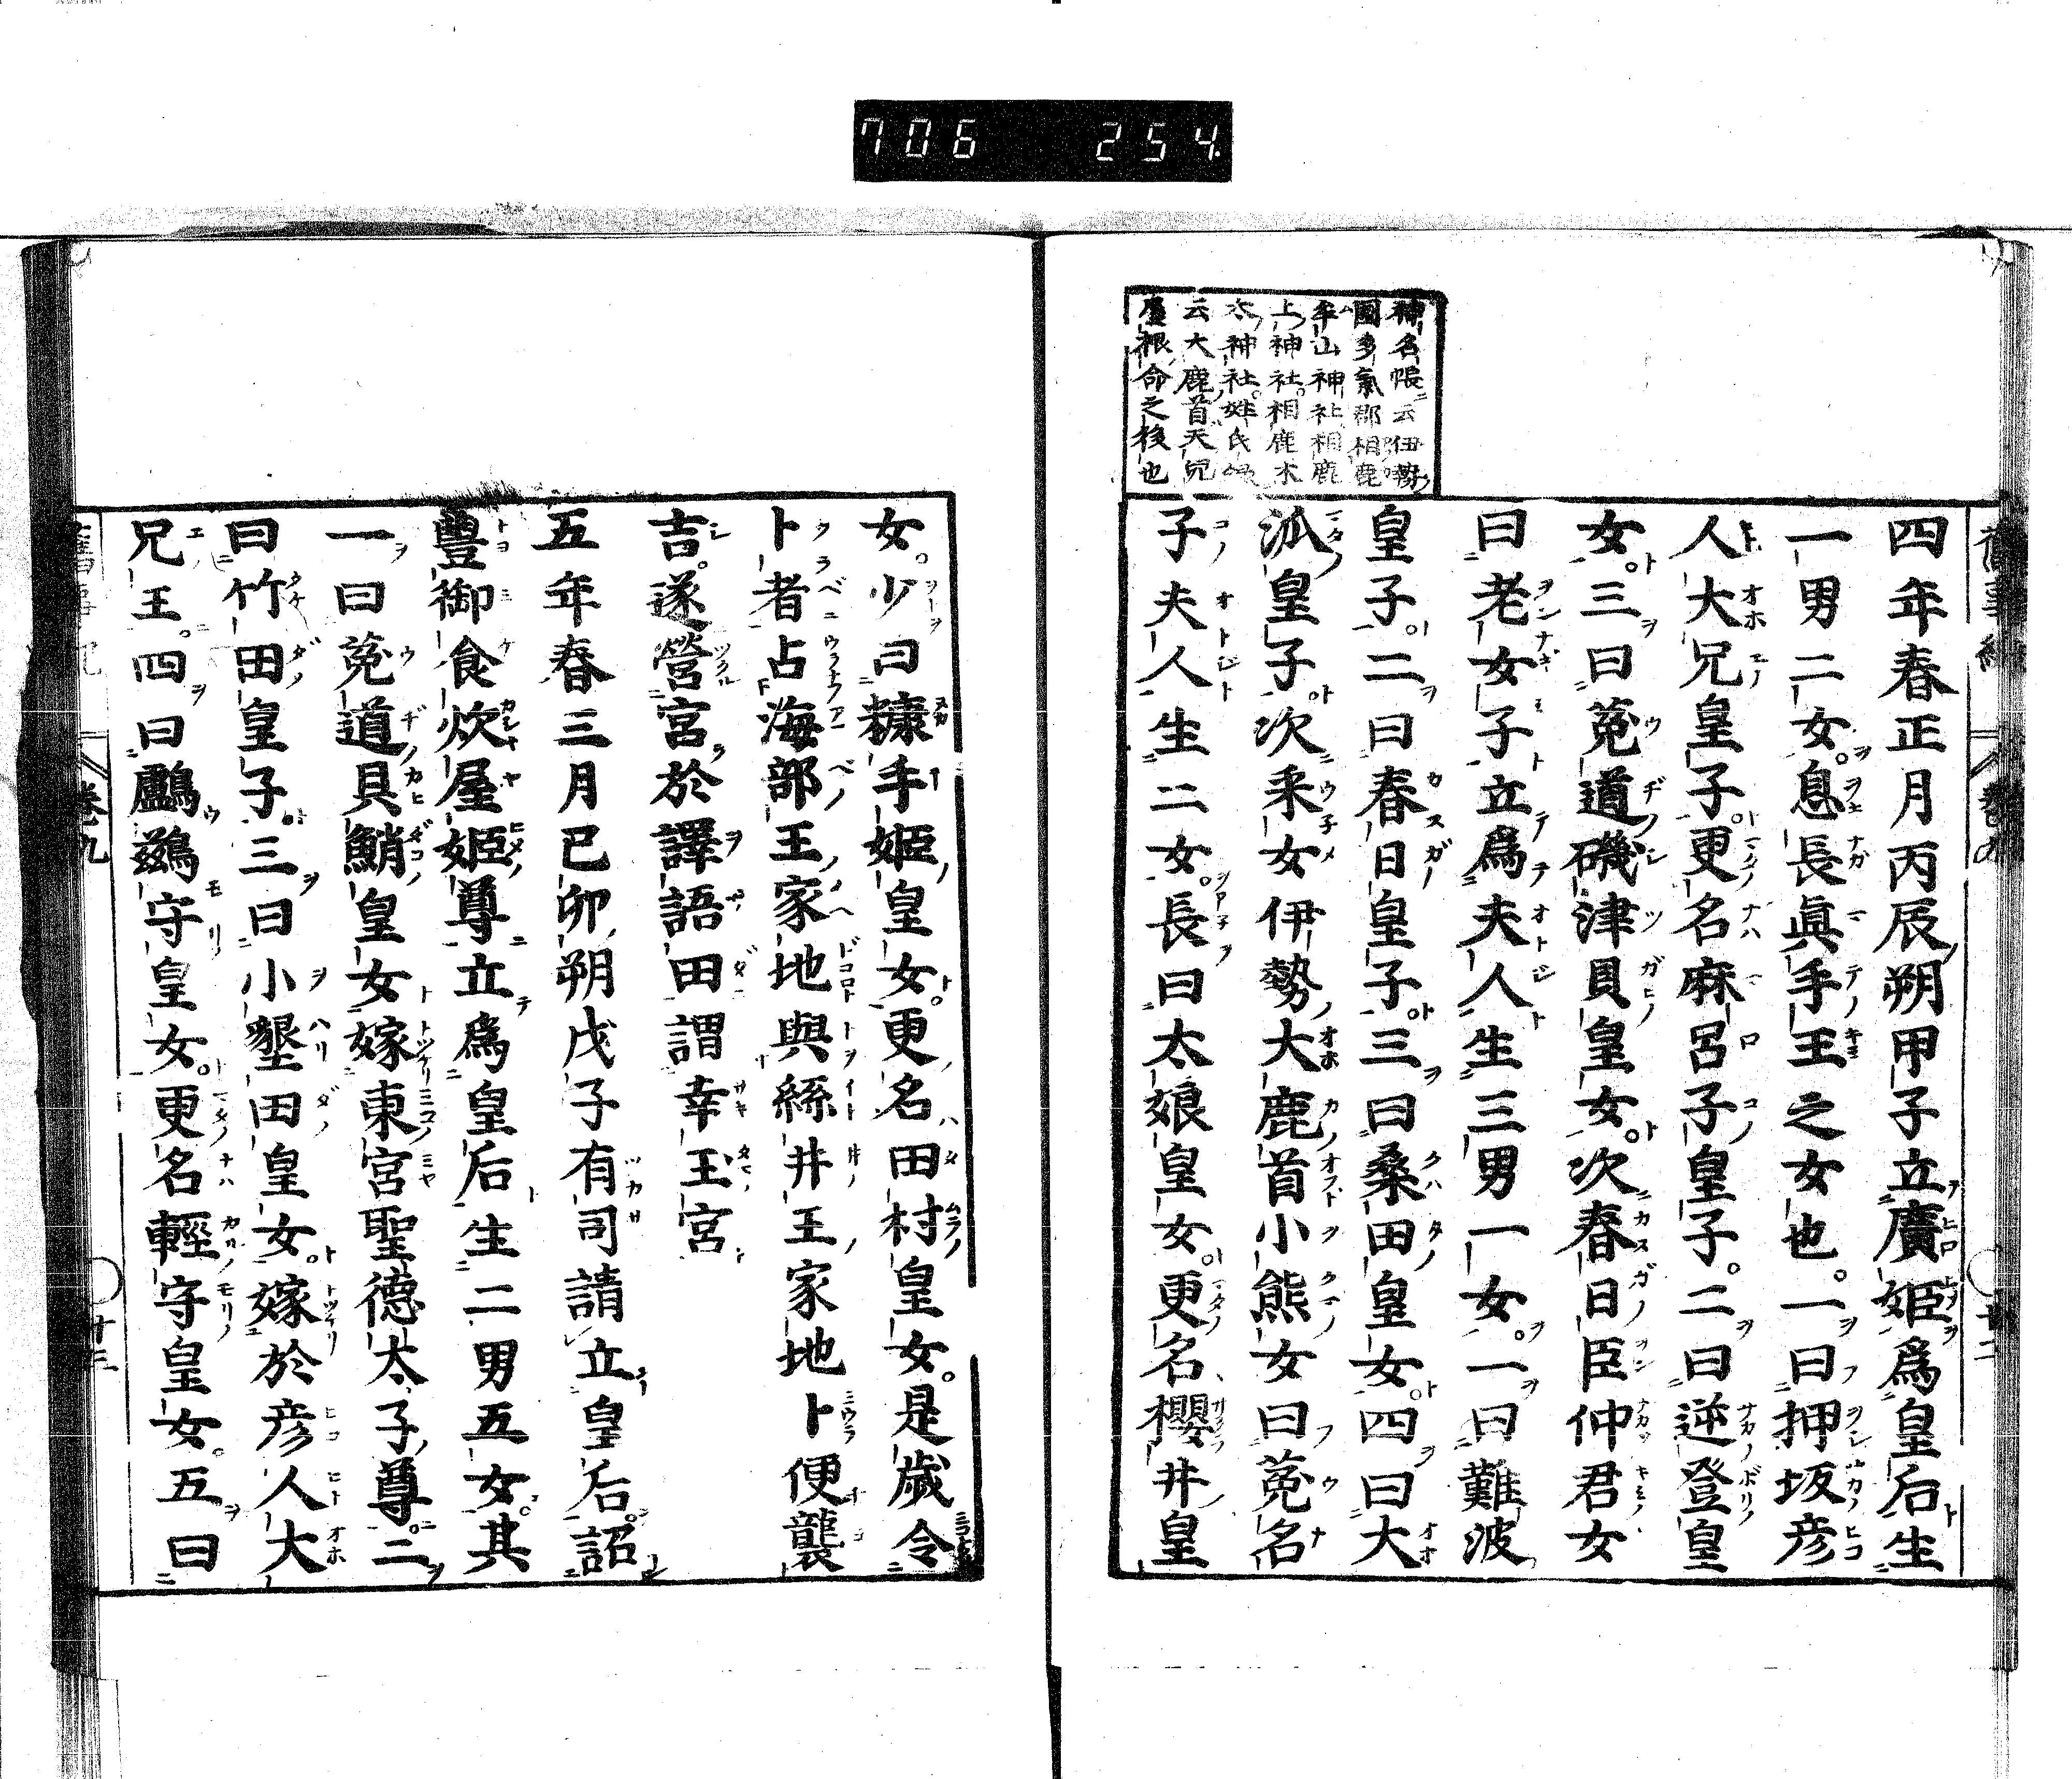 706 254
神名帳云伊勢
國多氣郡相鹿
牟山神社相鹿
上神社相鹿木
太神社姓氏録
云大鹿首天兒
屋根命之後也
四年春正月丙辰朔甲子立廣姫爲皇后生
一男二女息長眞手王之女也一曰押坂彦
人大兄皇子更名麻呂子皇子二曰逆登皇
女三曰菟道磯津貝皇女次春日臣仲君女
曰老女子立爲夫人生三男一女一曰難波
皇子二曰春日皇子三曰桑田皇女四曰大
派皇子次采女伊勢大鹿首小熊女曰菟名
子夫人生二女長曰太娘皇女更名櫻井皇
女少曰糠手姫皇女更名田村皇女是歲令
卜者占海部王家地與絲井王家地卜便襲
吉遂營宮於譯語田謂幸玉宮
五年春三月己卯朔戊子有司請立皇后詔
豐御食炊屋姫尊立爲皇后生二男五女其
一曰菟道貝鮹皇女嫁東宮聖德太子尊二
曰竹田皇子三曰小墾田皇女嫁於彦人大
兄王四曰鸕鷀守皇女更名輕守皇女五曰
卷九
十三